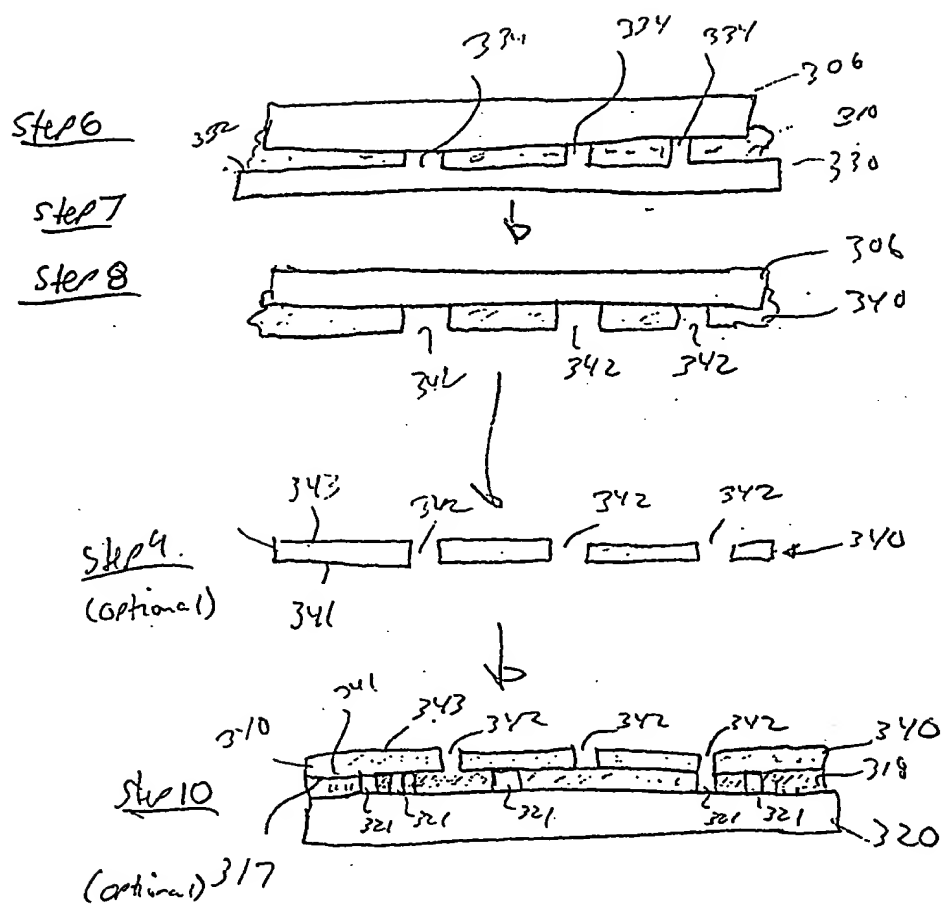 334 334 334
306
Step 6
332 310
330
Step 7
Step 8
306
340
342 342
343 342 342 342
Step 9. 340
(optional)
341
341 343 342 342 342
310 340
318
Step 10
321 321 321 321 321
320
(optional) 317